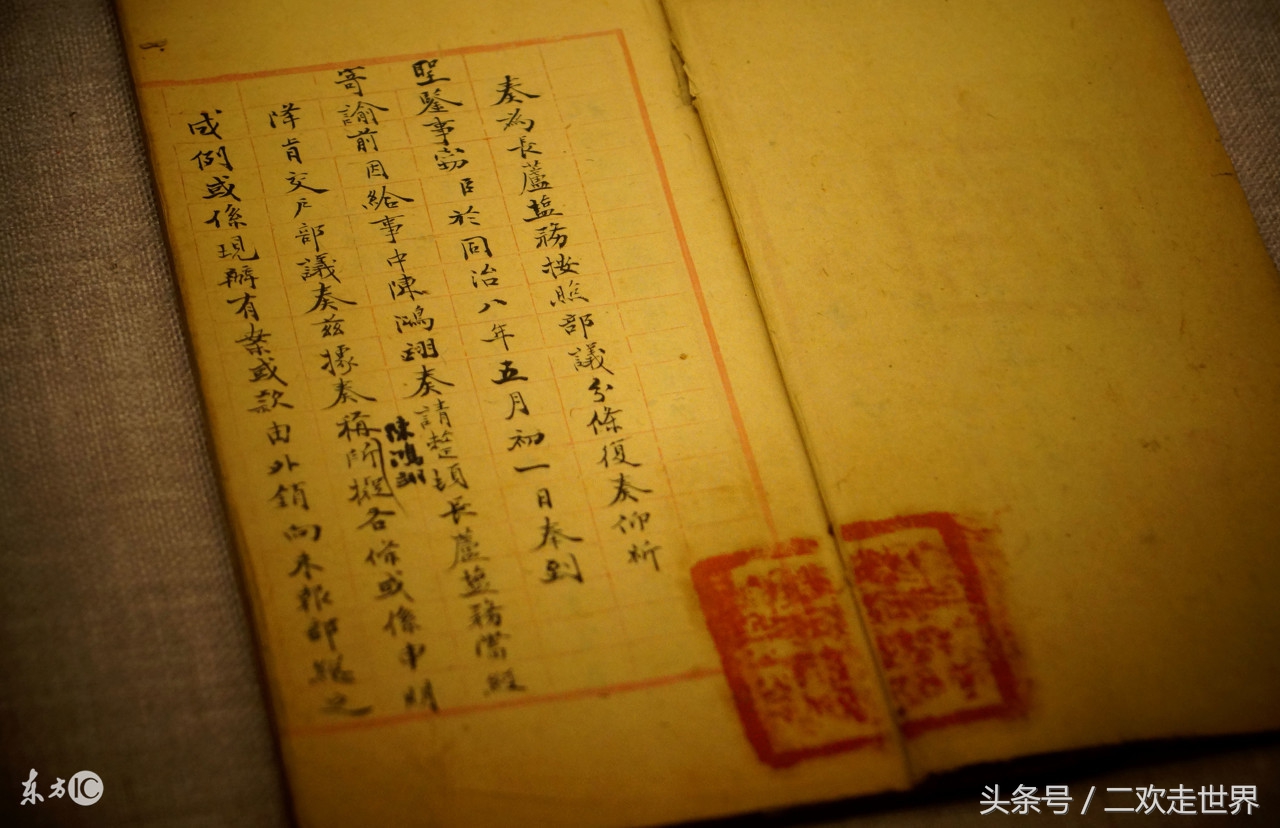 奏為長蘆塩務按照部議分條復奏仰祈
聖鑒事竊臣於同治八年五月初一日奉到
寄諭前因給事中陳鴻翊奏請整頓長蘆塩務當經
降旨交戶部議奏茲據奏稱所擬各條或係申明
陳鴻翊
成例或係現辦有案或款由外銷向未報部總之
东方IC
头条号 / 二欢走世界